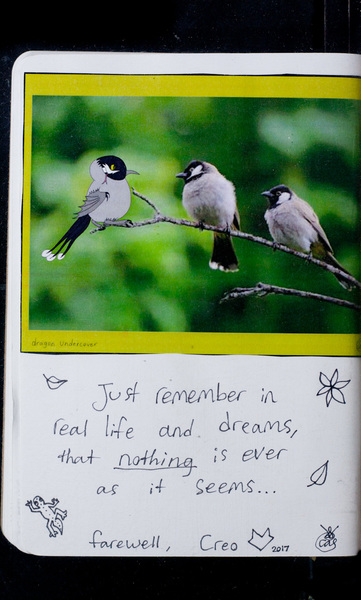 dragon undercover
Just remember in
real life and dreams,
that nothing is ever
as it seems...
farewell, Creo 2017
Cas